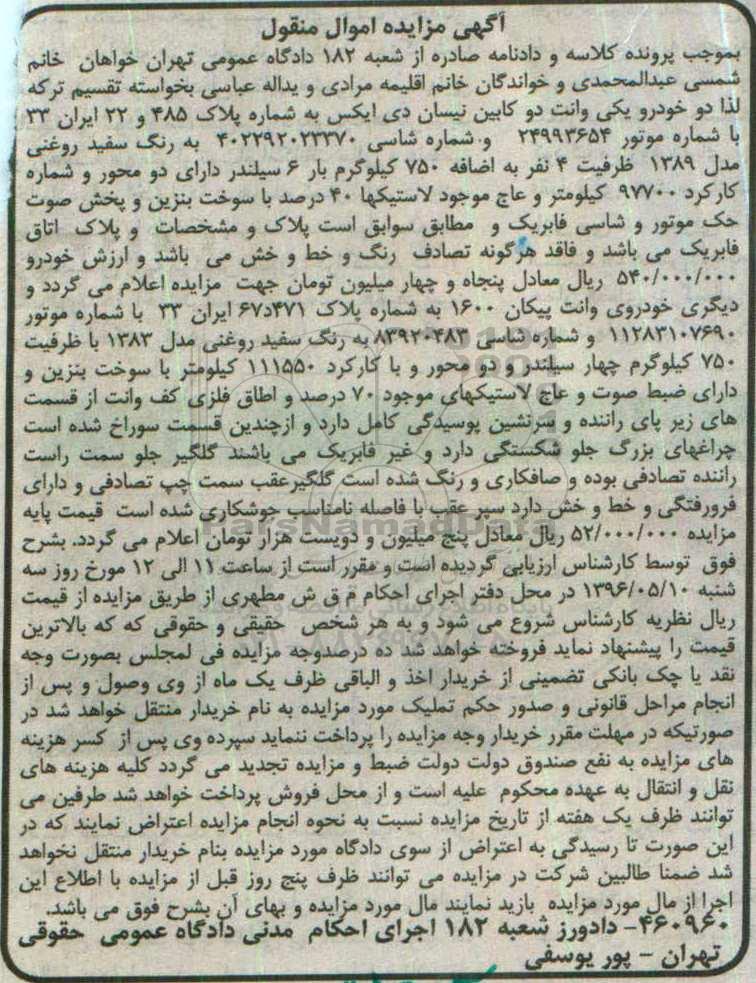 آگهی مزایده اموال منقول
بموجب پرونده کلاسه و دادنامه صادره از شعبه ۱۸۲ دادگاه عمومی تهران خواهان خانم
شمسی عبدالمحمدی و خواندگان خانم اقلیمه مرادی و یداله عباسی بخواسته تقسیم ترکه
لذا دو خودرو یکی وانت دو کابین نیسان دی ایکس به شماره پلاک ۴۸۵ و ۲۲ ایران ۳۳
با شماره موتور ۲۴۹۹۳۶۵۴ و شماره شاسی ۴۰۲۲۹۲۰۲۳۳۷۰ به رنگ سفید روغنی
مدل ۱۳۸۹ ظرفیت ۴ نفر به اضافه ۷۵۰ کیلوگرم بار ۶ سیلندر دارای دو محور و شماره
کارکرد ۹۷۷۰۰ کیلومتر و عاج موجود لاستیکها ۴۰ درصد با سوخت بنزین و پخش صوت
حک موتور و شاسی فابریک و مطابق سوابق است پلاک و مشخصات و پلاک اتاق
فابریک می باشد و فاقد هرگونه تصادف رنگ و خط و خش می باشد و ارزش خودرو
۵۴۰/۰۰۰/۰۰۰ ریال معادل پنجاه و چهار میلیون تومان جهت مزایده اعلام می گردد و
دیگری خودروی وانت پیکان ۱۶۰۰ به شماره پلاک ۴۷۱د۶۷ ایران ۳۳ با شماره موتور
۱۱۲۸۳۱۰۷۶۹۰ و شماره شاسی ۸۳۹۲۰۴۸۳ به رنگ سفید روغنی مدل ۱۳۸۳ با ظرفیت
۷۵۰ کیلوگرم چهار سیلندر و دو محور و با کارکرد ۱۱۱۵۵۰ کیلومتر با سوخت بنزین و
دارای ضبط صوت و عاج لاستیکهای موجود ۷۰ درصد و اطاق فلزی کف وانت از قسمت
های زیر پای راننده و سرنشین پوسیدگی کامل دارد و ازچندین قسمت سوراخ شده است
چراغهای بزرگ جلو شکستگی دارد و غیر فابریک می باشند گلگیر جلو سمت راست
راننده تصادفی بوده و صافکاری و رنگ شده است گلگیرعقب سمت چپ تصادفی و دارای
فرورفتگی و خط و خش دارد سپر عقب با فاصله نامناسب جوشکاری شده است قیمت پایه
مزایده ۵۲/۰۰۰/۰۰۰ ریال معادل پنج میلیون و دویست هزار تومان اعلام می گردد. بشرح
فوق توسط کارشناس ارزیابی گردیده است و مقرر است از ساعت ۱۱ الی ۱۲ مورخ روز سه
شنبه ۱۳۹۶/۰۵/۱۰ در محل دفتر اجرای احکام م ق ش مطهری از طریق مزایده از قیمت
ریال نظریه کارشناس شروع می شود و به هر شخص حقیقی و حقوقی که که بالاترین
قیمت را پیشنهاد نماید فروخته خواهد شد ده درصدوجه مزایده فی لمجلس بصورت وجه
نقد یا چک بانکی تضمینی از خریدار اخذ و الباقی ظرف یک ماه از وی وصول و پس از
انجام مراحل قانونی و صدور حکم تملیک مورد مزایده به نام خریدار منتقل خواهد شد در
صورتیکه در مهلت مقرر خریدار وجه مزایده را پرداخت ننماید سپرده وی پس از کسر هزینه
های مزایده به نفع صندوق دولت دولت ضبط و مزایده تجدید می گردد کلیه هزینه های
نقل و انتقال به عهده محکوم علیه است و از محل فروش پرداخت خواهد شد طرفین می
توانند ظرف یک هفته از تاریخ مزایده نسبت به نحوه انجام مزایده اعتراض نمایند که در
این صورت تا رسیدگی به اعتراض از سوی دادگاه مورد مزایده بنام خریدار منتقل نخواهد
شد ضمنا طالبین شرکت در مزایده می توانند ظرف پنج روز قبل از مزایده با اطلاع این
اجرا از مال مورد مزایده بازید نمایند مال مورد مزایده و بهای آن بشرح فوق می باشد.
۴۶۰۹۶۰- دادورز شعبه ۱۸۲ اجرای احکام مدنی دادگاه عمومی حقوقی
تهران - پور یوسفی
ParsNamadData